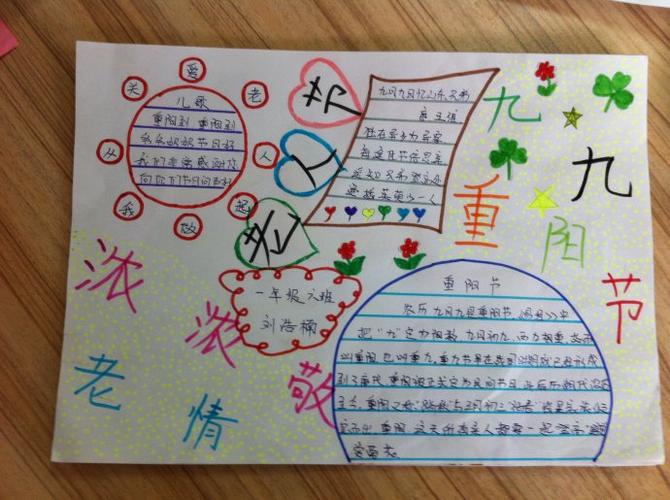 关
爱
老
人
从
我
敬
起
儿歌
重阳到 重阳到
爷爷奶奶节日好
我们非常感谢您
向你们节日问声好
老人节
九月九日忆山东兄弟
唐 王维
独在异乡为异客
每逢佳节倍思亲
遥知兄弟登高处
遍插茱萸少一人
九九
重阳节
浓浓敬老情
一年级六班
刘浩楠
重阳节
农历九月九日重阳节
把"九"定为阳数 九月初九 两九相重
叫重阳 也叫重九 重九节早在战国时期就已经形成
到了唐代 重阳被正式定为民间节日 此后历朝代沿袭
至今 重阳又称"踏秋"与三月初三"踏春"
重阳 这天所有亲人都要一起登高